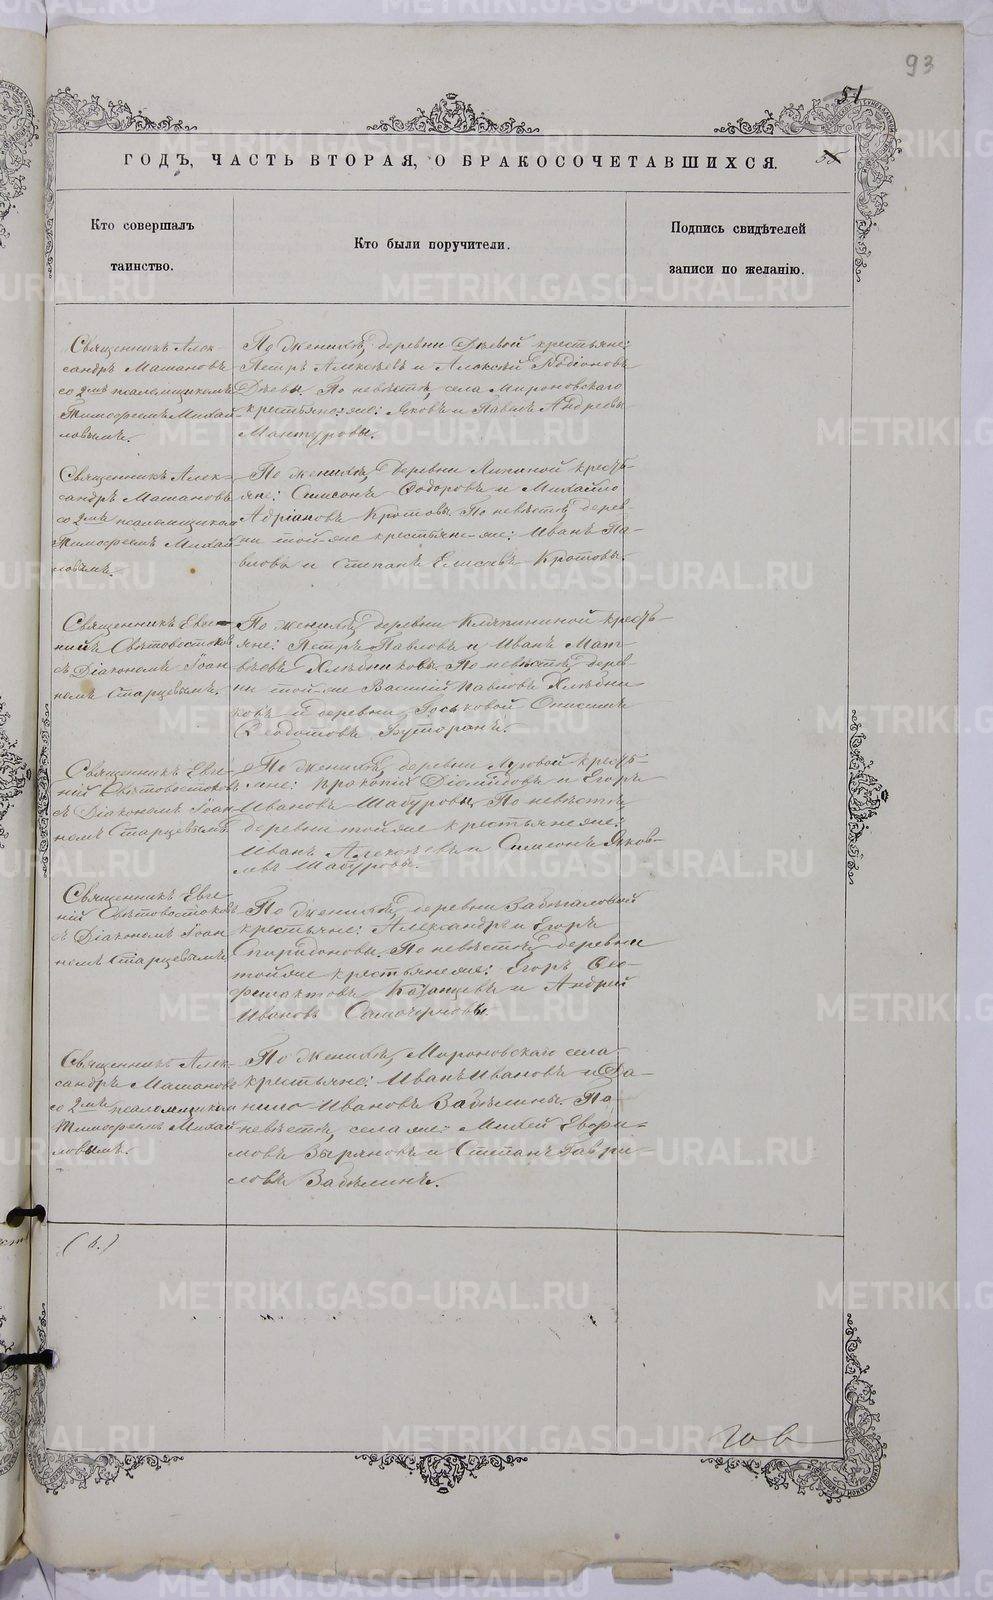 93
51
55
ГОДЪ, ЧАСТЬ ВТОРАЯ, О БРАКОСОЧЕТАВШИХСЯ.
Кто совершалъ
таинство.
Кто были поручители.
Подпись свидѣтелей
записи по желанію.
Священникъ Алек-
сандръ Машановъ
со 2мъ псаломщикомъ
Тимофеемъ Михай-
ловымъ.
По женихѣ, деревни Дѣевой крестьяне:
Петръ Алексѣевъ и Алексѣй Родіоновъ
Дѣевы. По невѣстѣ, села Мироновскаго
крестьяне же: Яковъ и Павелъ Андреевы
Мантуровы.
Священникъ Алек-
сандръ Машановъ
со 2мъ псаломщикомъ
Тимофеемъ Михай-
ловымъ.
По женихѣ, деревни Липиной кресть-
яне: Самсонъ Ѳодоровъ и Михайло
Адріановъ Кротовы. По невѣстѣ, дерев-
ни той-же крестьяне-же: Иванъ Па-
вловъ и Степанъ Елисѣевъ Кротовы.
Священникъ Евге-
ній Свѣтовостоковъ
съ Діакономъ Іоан-
номъ Старцевымъ.
По женихѣ, деревни Кляпининой кресть-
яне: Петръ Павловъ и Иванъ Мат-
вѣевъ Хлѣбниковы. По невѣстѣ, дерев-
ни той-же Василій Павловъ Хлѣбни-
ковъ и деревни Госьковой Онисимъ
Ѳеодотовъ Буторинъ.
Священникъ Евге-
ній Свѣтовостоковъ
съ Діакономъ Іоан-
номъ Старцевымъ
По женихѣ, деревни Луговой кресть-
яне: Прокопій Діомидовъ и Егоръ
Ивановъ Шабуровы. По невѣстѣ,
деревни той же крестьяне же:
Иванъ Алексѣевъ и Самсонъ Яков-
левъ Шабуровы.
Священникъ Евге-
ній Свѣтовостоковъ
съ Діакономъ Іоан-
номъ Старцевымъ
По женихѣ, деревни
крестьяне: Александръ и Егоръ
Спиридоновы. По невѣстѣ, деревни
той же крестьяне же: Егоръ Ѳео-
филактовъ Казанцевъ и Андрей
Ивановъ Самочерновы.
Священникъ Алек-
сандръ Машановъ
со 2мъ псаломщикомъ
Тимофеемъ Михай-
ловымъ.
По женихѣ, Мироновскаго села
крестьяне: Иванъ Ивановъ и Да-
нило Ивановъ Забѣлины. По
невѣстѣ, села же: Михей Евфи-
мовъ Зыряновъ и Степанъ Гаври-
ловъ Забѣлинъ.
(6.)
METRIKI.GASO-URAL.RU